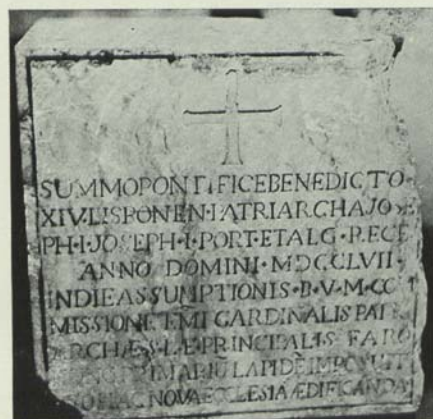 SUMMOPONTIFICEBENEDICTO·
XIV·LISBONEN·PATRIARCHAJOSE
PH·I·JOSEPH·I·PORT·ET ALG·REGE
ANNO DOMINI·MDCCLVII·
INDIE ASSUMPTIONIS·B·V·M·
MISSIONE EMI CARDINALIS PATRI
PRINCIPALIS FARO
LAPIDĒ IMPOSUIT
NOVA ECCLESIA ÆDIFICANDA